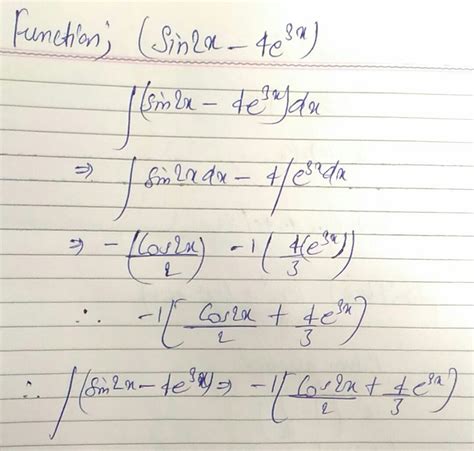 Function; (Sin2x - 4e^{3x})
∫(sin2x - 4e^{3x})dx
⇒ ∫sin2xdx - 4∫e^{3x}dx
⇒ -(Cos2x/2) - 1(4(e^{3x})/3)
∴ -1[Cos2x/2 + 4/3 e^{3x}]
∴ ∫(sin2x - 4e^{3x}) ⇒ -1[Cos2x/2 + 4/3 e^{3x}]